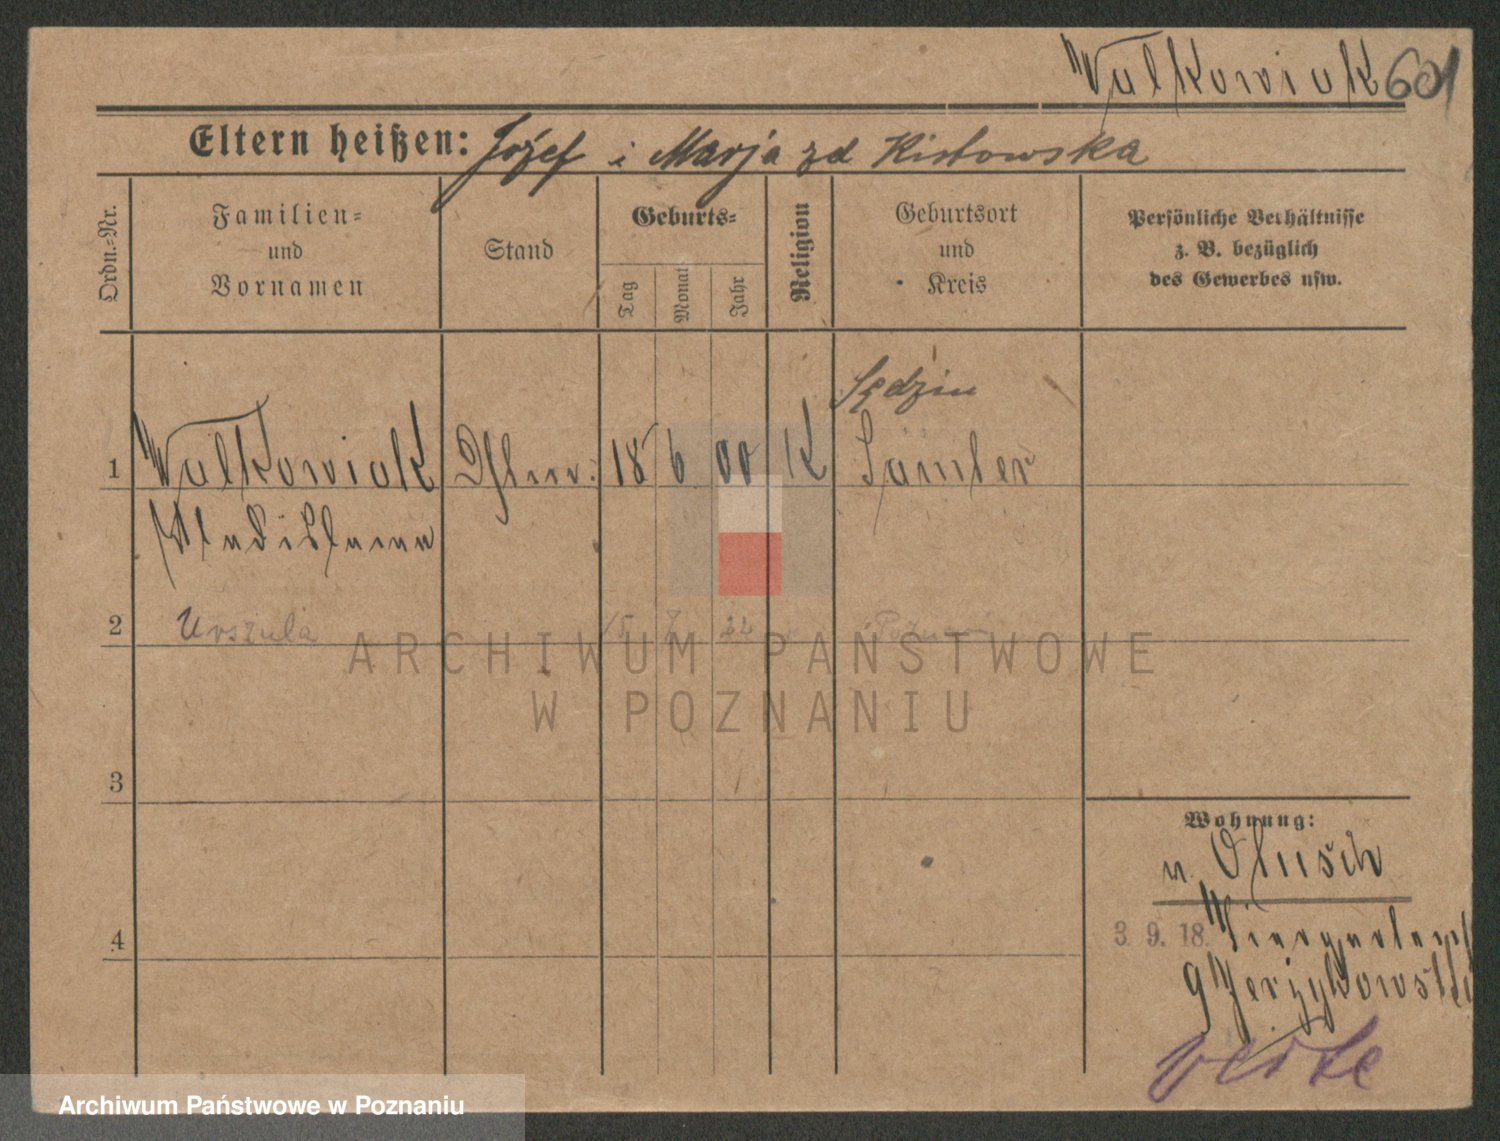 Walkowiak 601
Eltern heißen: Józef i Marja zd Kistowska
Ordn.-Nr.
Familien-
und
Vornamen
Stand
Geburts-
Tag
Monat
Jahr
Religion
Geburtsort
und
Kreis
Persönliche Verhältnisse
z. B. bezüglich
des Gewerbes usw.
Sędzin
1 Walkowiak 18 6 00 K Samter
Wladislawa
2 Urszula 15 7 22 Poznań
ARCHIWUM PAŃSTWOWE
W POZNANIU
3
Wohnung:
Olusch
4
3. 9. 18.
9 Jerzykowski
verte
Archiwum Państwowe w Poznaniu